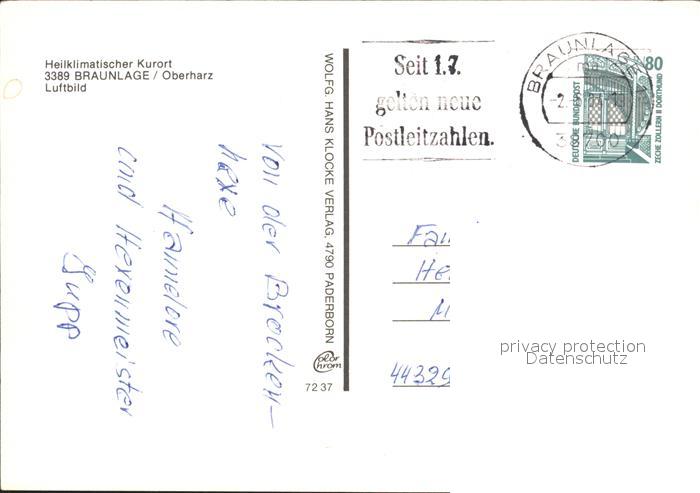 Heilklimatischer Kurort
3389 BRAUNLAGE / Oberharz
Luftbild
Von der Brocken-
hexe
Hannelore
und Hexenmeister
Gupp
WOLFG. HANS KLOCKE VERLAG, 4790 PADERBORN
Color chrom
72 37
Seit 1.7.
gelten neue
Postleitzahlen.
BRAUNLAGE
38700
80
DEUTSCHE BUNDESPOST
ZECHE ZOLLERN II DORTMUND
Fam
He
M
44329
privacy protection
Datenschutz